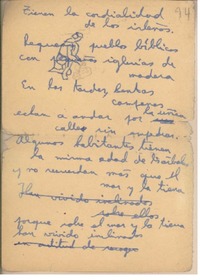 Tienen la cordialidad
de los isleños.
Pequeño pueblo bíblico
con pequeñas iglesias de
madera
En las tardes lentas
campanas
echan a andar por la
calles sin
Algunos habitantes tienen
la misma edad de
y no recuerdan más que el
mar y la tierra
Han vivido inclinados
sobre ellos,
porque sobre el mar y la tierra
han vivido inclinados
en actitud de